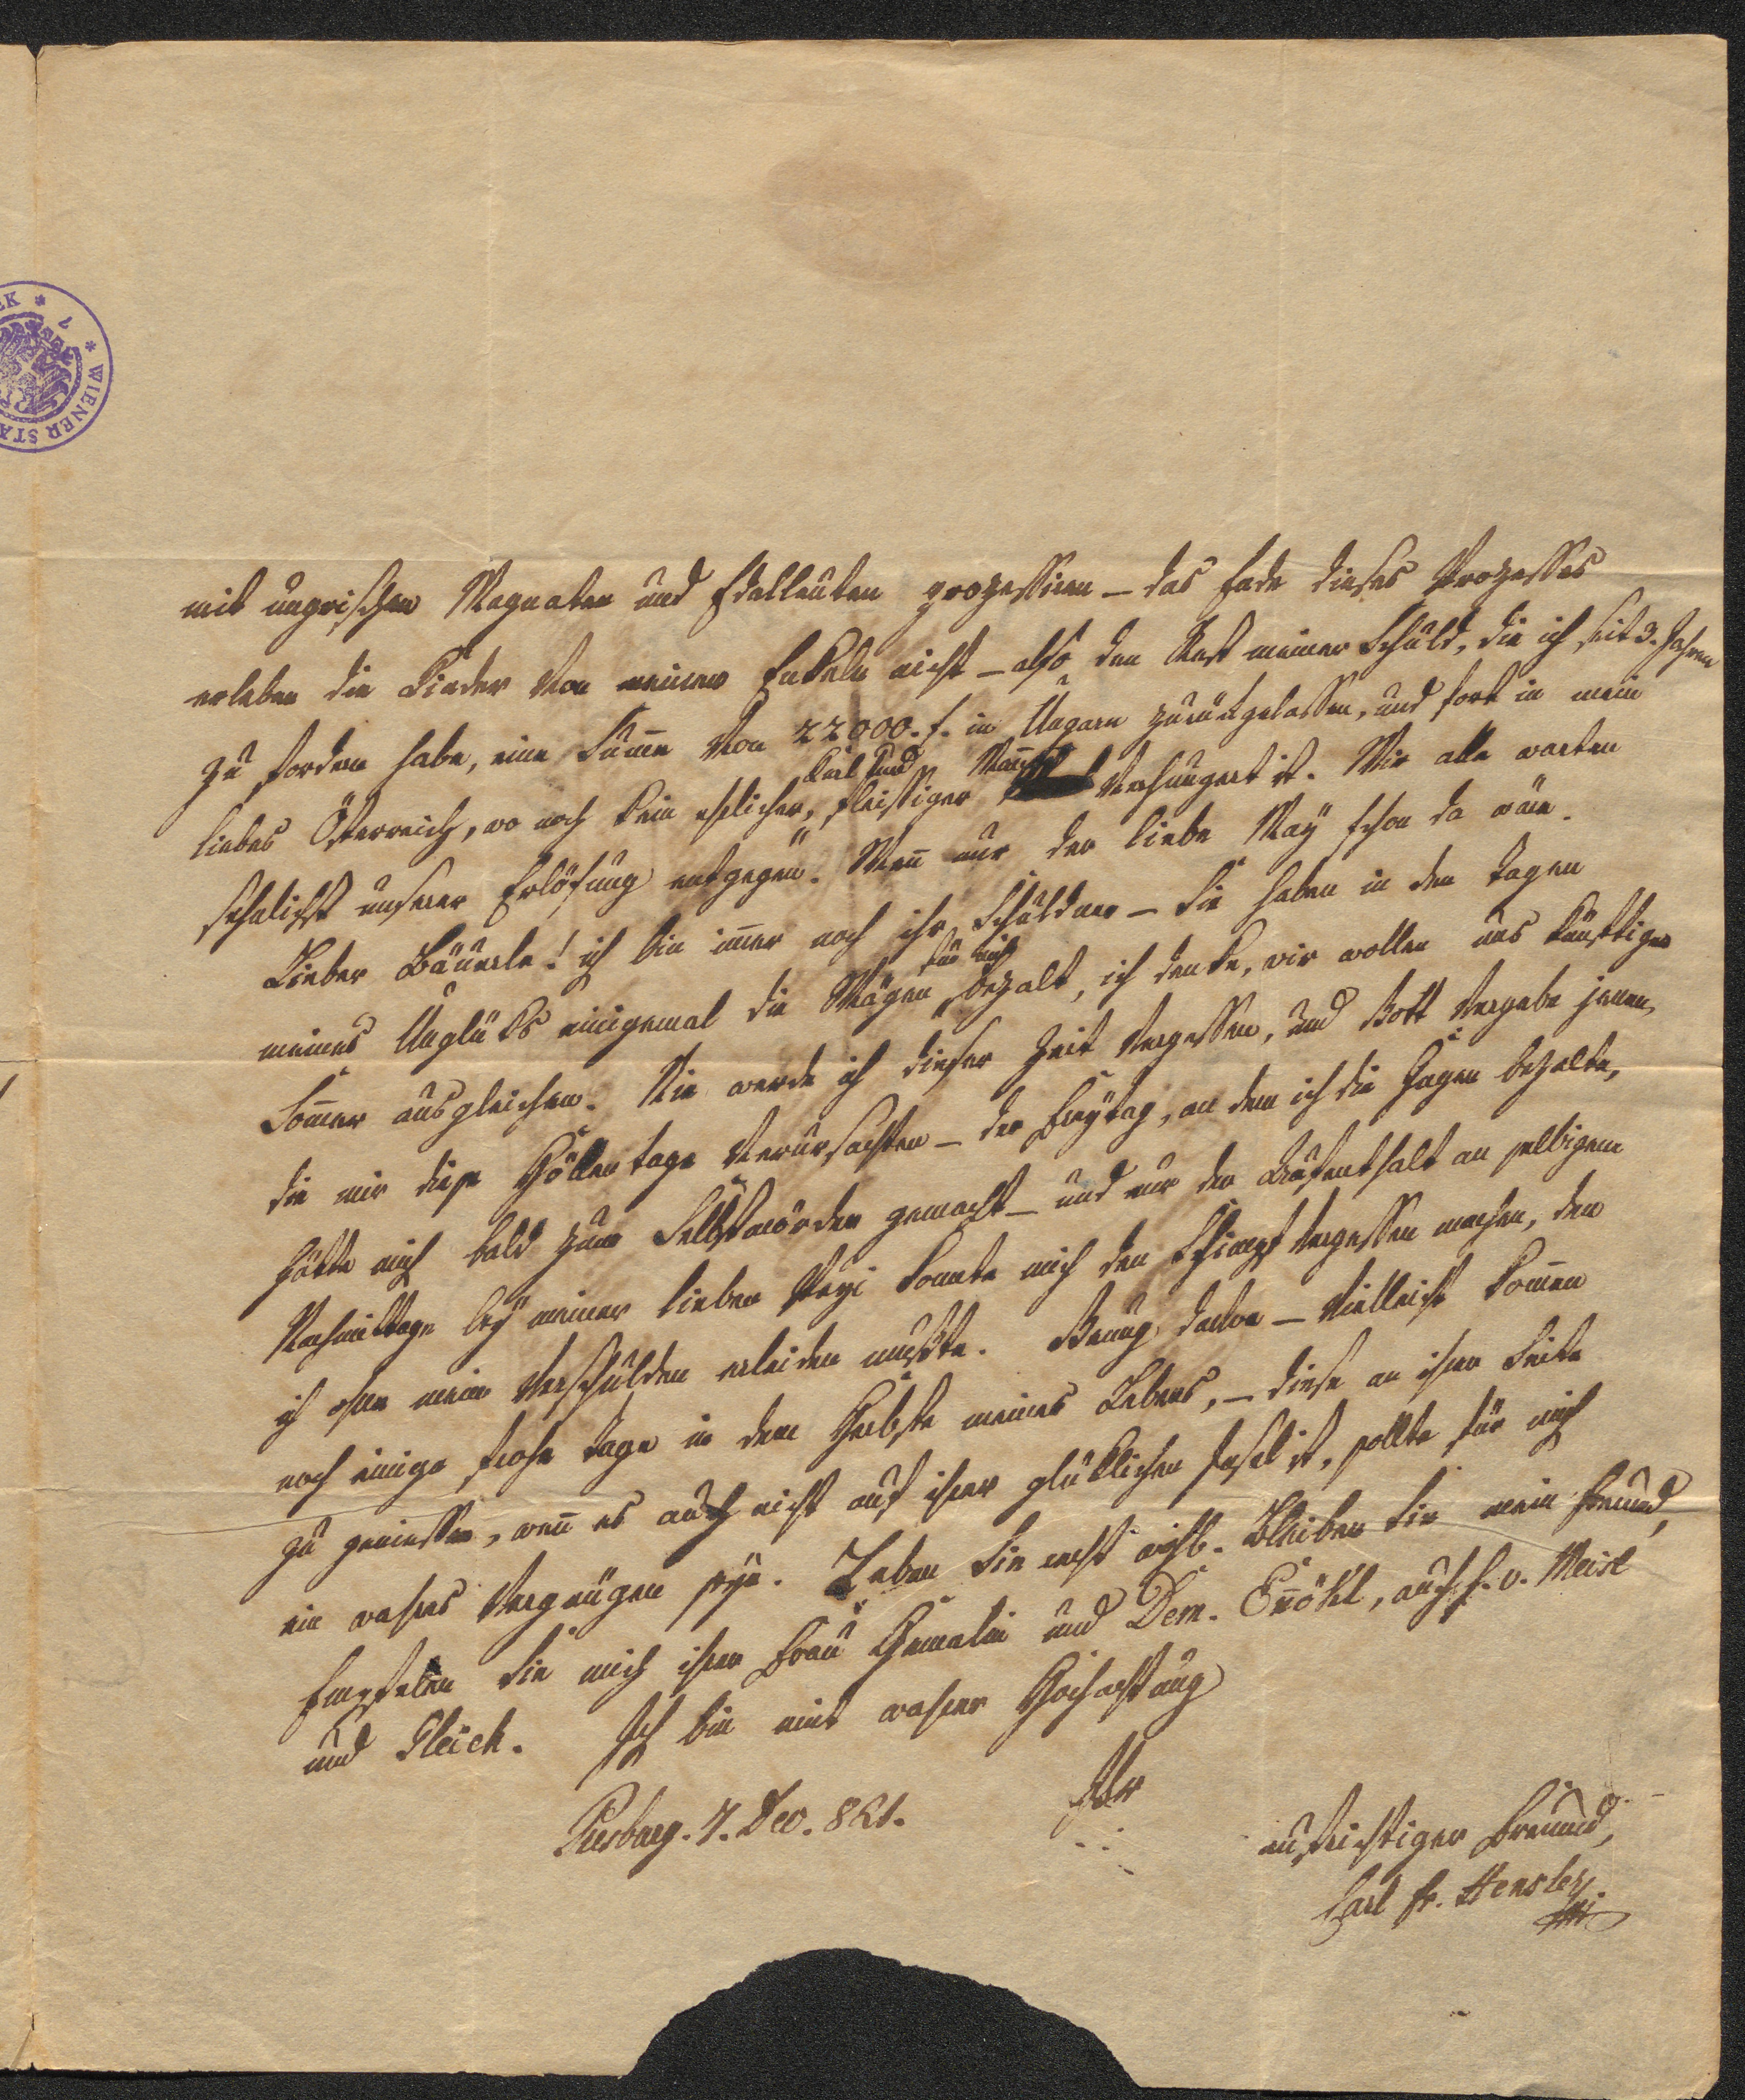 mit ungrischen Magnaten und Edelleuten prozessiren – das Ende dieses Prozesses
erleben die Kinder von meinen Enkeln nicht – also den Rest meiner Schuld, die ich seit 3. Jahren
zu fordern habe, eine Sum̄e von 22000. f. in Ungarn zurükgelassen, und fort in mein
liebes Österreich, wo noch kein ehrlicher, fleissiger Man̄ verhungert ist. Wir alle warten
sehnlichst unserer Erlösung entgegen. Wen̄ nur der liebe May schon da wäre.
Lieber Bäuerle! ich bin im̄er noch ihr Schuldner – Sie haben in den Tagen
meines Unglüks einigemal die Wägen für mich bezalt, ich denke, wir wollen uns künftigen
Som̄er ausgleichen. Nie werde ich dieser Zeit vergessen, und Gott vergebe jenen,
die mir diese Höllentage verursachten – der Freytag, an dem ich die Gagen bezalte,
hätte mich bald zum Selbstmörder gemacht – und nur der Aufenthalt an selbigem
Nachmittage bey meiner lieben konnte mich den Schimpf vergessen machen, den
ich ohne mein Verschulden erleiden mußte. Genug davon – vielleicht kom̄en
noch einige frohe Tage in dem Herbste meines Lebens, – diese an ihrer Seite
zu geniessen, wen̄ es auch nicht auf ihrer glüklichen Insel ist, sollte für mich
ein wahres Vergnügen seyn. Leben Sie recht wohl. Bleiben Sie mein Freund,
Empfelen Sie mich ihrer Frau Gemalin und Dem. En̄ökl, auch H. v. Meisl
und Gleich. Ich bin mit wahrer Hochachtung
Ihr
Presburg. 7. Dec. 821.
aufrichtiger Freund,
Carl Fr. Hensler
WIENER STA
EK